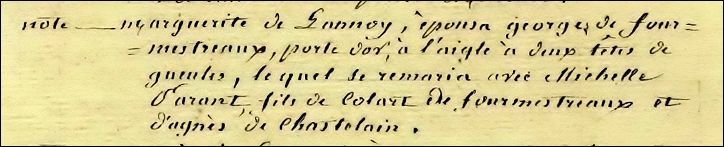 note — Marguerite de Lannoy, épousa george de four=
= mestreaux, porte d'or, à l'aigle à deux têtes de
gueules, lequel se remaria avec Michelle
Varant, fils de Colart de fourmestreaux et
d'agnès de Chastelain.